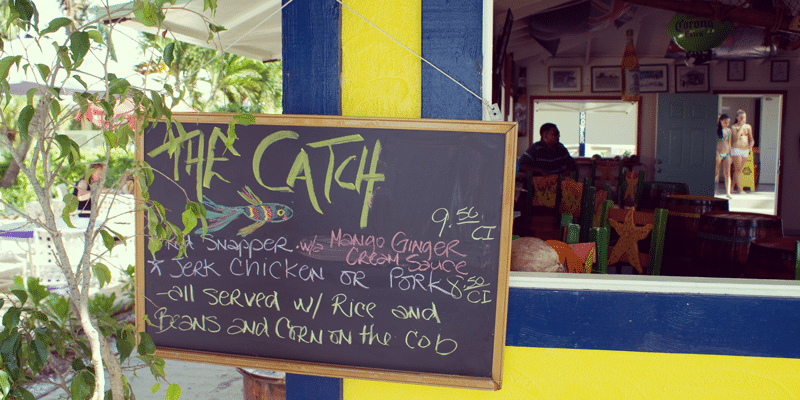 Corona
THE CATCH
Snapper w/a Mango Ginger
Cream Sauce
9.50
CI
* Jerk Chicken or Pork
8.50
CI
-all served w/ Rice and
Beans and Corn on the Cob